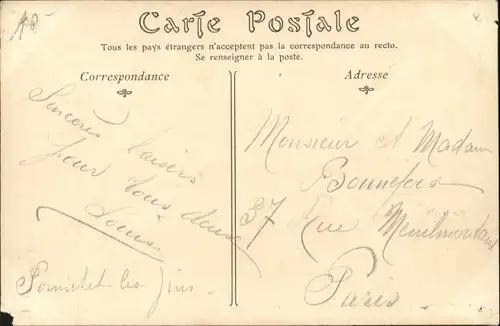 Carte Postale
Tous les pays étrangers n'acceptent pas la correspondance au recto.
Se renseigner à la poste.
Correspondance
Adresse
Sincères baisers
pour tous deux
Louis
les
Monsieur et Madame
37 Rue Ménilmontant
Paris